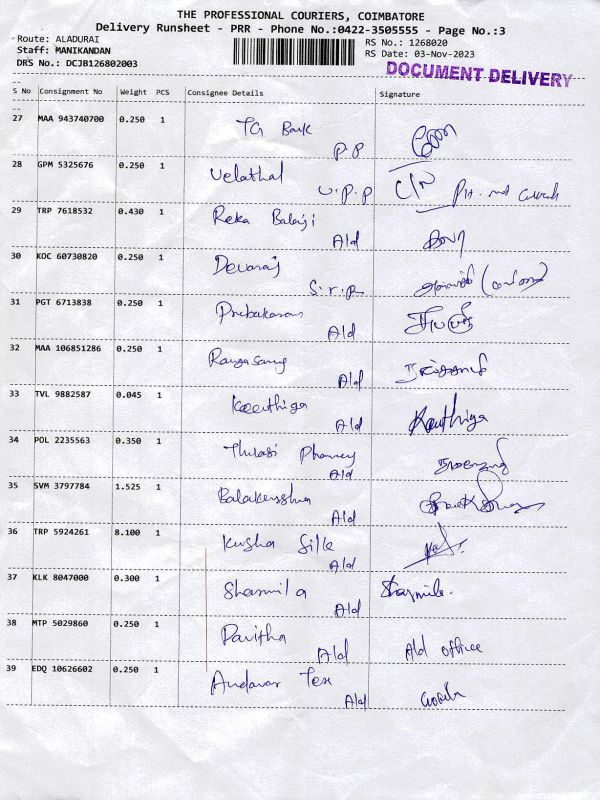 THE PROFESSIONAL COURIERS, COIMBATORE
Delivery Runsheet - PRR - Phone No.:0422-3505555 - Page No.:3
Route: ALADURAI RS No.: 1268020
Staff: MANIKANDAN RS Date: 03-Nov-2023
DRS No.: DCJB126802003 DOCUMENT DELIVERY
S No Consignment No Weight PCS Consignee Details Signature
27 MAA 943740700 0.250 1 TG Bank
P.P
28 GPM 5325676 0.250 1 Velathal
V.P.P
29 TRP 7618532 0.430 1 Reka Balaji
Ald
30 KOC 60730820 0.250 1 Devaraj
S.r.p
31 PGT 6713838 0.250 1 Prebakaran
Ald
32 MAA 106851286 0.250 1
Ald
33 TVL 9882587 0.045 1 Keerthiga Keerthiga
Ald
34 POL 2235563 0.350 1 Thulasi
Ald
35 SVM 3797784 1.525 1
Ald
36 TRP 5924261 8.100 1 Kusha Silk
Ald
37 KLK 8047000 0.300 1 Sharmila Sharmila.
Ald
38 MTP 5029860 0.250 1 Pavitha
Ald Ald office
39 EDQ 10626602 0.250 1 Andavar Tex
Ald